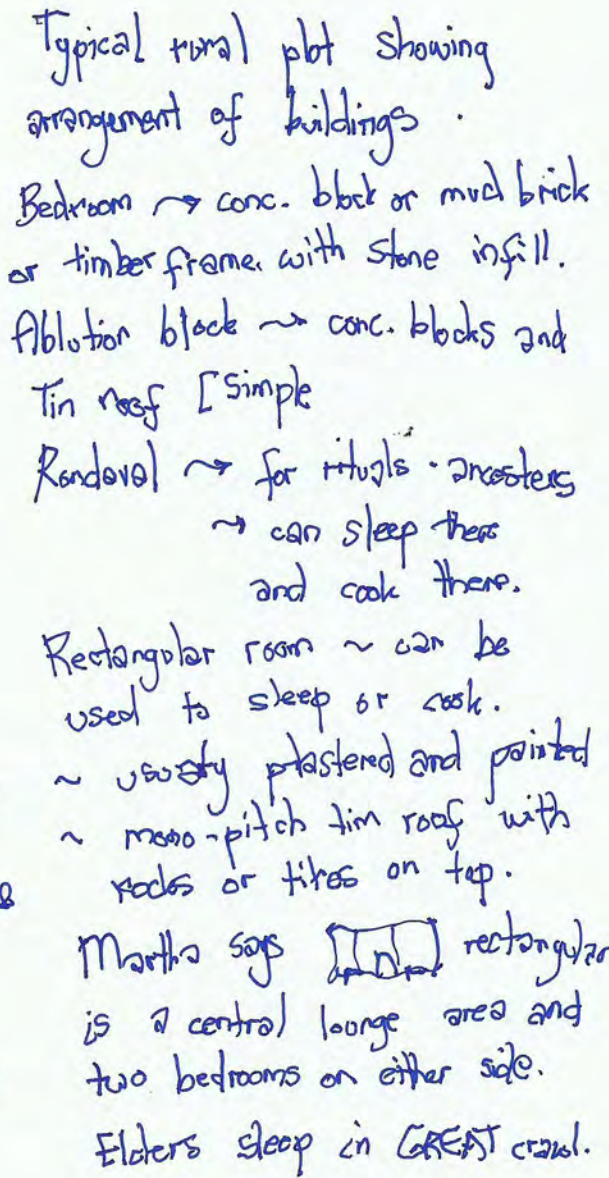 Typical rural plot showing
arrangement of buildings.
Bedroom ~> conc. block or mud brick
or timber frame. with stone infill.
Ablution block ~> conc. blocks and
Tin roof [Simple
Rondaval ~> for rituals - ancesters
~> can sleep there
and cook there.
Rectangular room ~ can be
used to sleep or cook.
~ usualy plastered and painted
~ mono-pitch tim roof with
rocks or tires on top.
Martha says rectangular
is a central lounge area and
two bedrooms on either side.
Elders sleep in GREAT crawl.